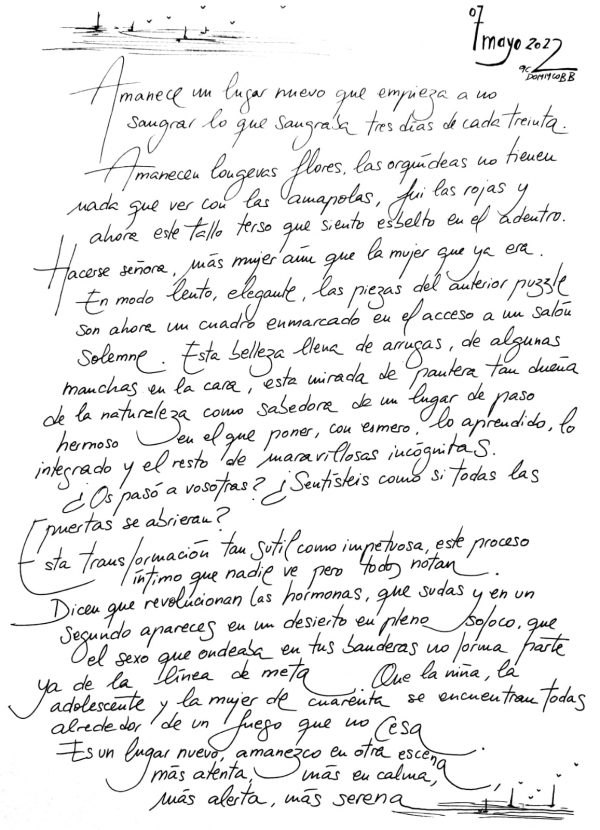 07
mayo 2022
DOMMCOBB
Amanece un lugar nuevo que empieza a no
sangrar lo que sangraba tres días de cada treinta.
Amanecen longevas flores, las orquídeas no tienen
nada que ver con las amapolas, fui las rojas y
ahora este tallo terso que siento esbelto en el adentro.
Hacerse señora, más mujer aún que la mujer que ya era.
En modo lento, elegante, las piezas del anterior puzzle
son ahora un cuadro enmarcado en el acceso a un salón
solemne. Esta belleza llena de arrugas, de algunas
manchas en la cara, esta mirada de pantera tan dueña
de la naturaleza como sabedora de un lugar de paso
hermoso en el que poner, con esmero, lo aprendido, lo
integrado y el resto de maravillosas incógnitas.
¿Os pasó a vosotras? ¿Sentísteis como si todas las
puertas se abrieran?
Esta transformación tan sutil como impetuosa, este proceso
íntimo que nadie ve pero todos notan.
Dicen que revolucionan las hormonas, que sudas y en un
segundo apareces en un desierto en pleno soloco, que
el sexo que ondeaba en tus banderas no forma parte
ya de la línea de meta. Que la niña, la
adolescente y la mujer de cuarenta se encuentran todas
alrededor de un fuego que no cesa.
Es un lugar nuevo, amanezco en otra escena,
más atenta, más en calma,
más alerta, más serena